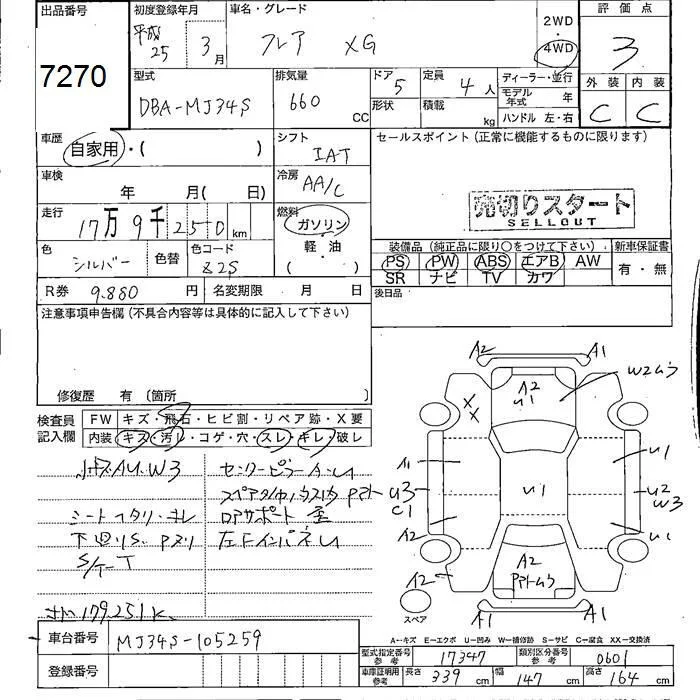 出品番号
7270
初度登録年月
平成
25 3月
車名・グレード
フレア XG
2WD
4WD
評価点
3
型式
DBA-MJ34S
排気量
660 CC
ドア 5
形状
定員 4人
積載 kg
ディーラー・並行
モデル年式 年
ハンドル 左・右
外装 内装
C C
車歴
自家用・( )
シフト
IAT
セールスポイント (正常に機能するものに限ります)
車検
年 月( 日)
冷房
AA/C
売切りスタート
SELLOUT
走行
17万9千250km
燃料
ガソリン
軽・油
( )
色
シルバー
色替
色コード
Z2S
装備品 (純正品に限り○をつけて下さい)
新車保証書
PS PW ABS エアB AW
SR ナビ TV カワ
有・無
R券 9.880円
名変期限 月 日
後日品
注意事項申告欄 (不具合内容等は具体的に記入して下さい)
修復歴 有 (箇所
検査員
記入欄
FW キズ・飛石・ヒビ割・リペア跡・X要
内装 キズ・汚レ・コゲ・穴・スレ・キレ・破レ
AU.W3
シート
S/ケーT
179.251K
A2 A1
W2ムラ
A2
U1
X
X
A1
U1
U3
C1
U1
U2
W3
A2
U1
A2
A2
A1 A1
スペア
A-キズ E-エクボ U-凹み W-補修跡 S-サビ C-腐食 XX-交換済
車台番号 MJ34S-105259
登録番号
型式指定番号
参考
17347
類別区分番号
参考
0601
車庫証明用
参考
長さ 339 cm
幅 147 cm
高さ 164 cm